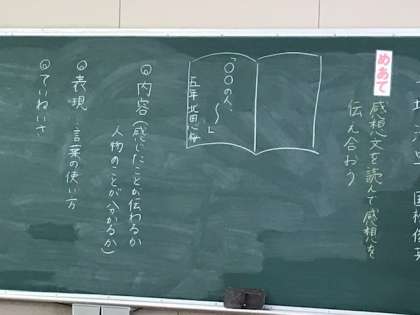 めあて
感想文を読んで感想を
伝え合おう
「〇〇の人、
〜」
五年
◎内容(感じたことが伝わるか
人物のことが分かるか)
◎表現・言葉の使い方
◎ていねいさ